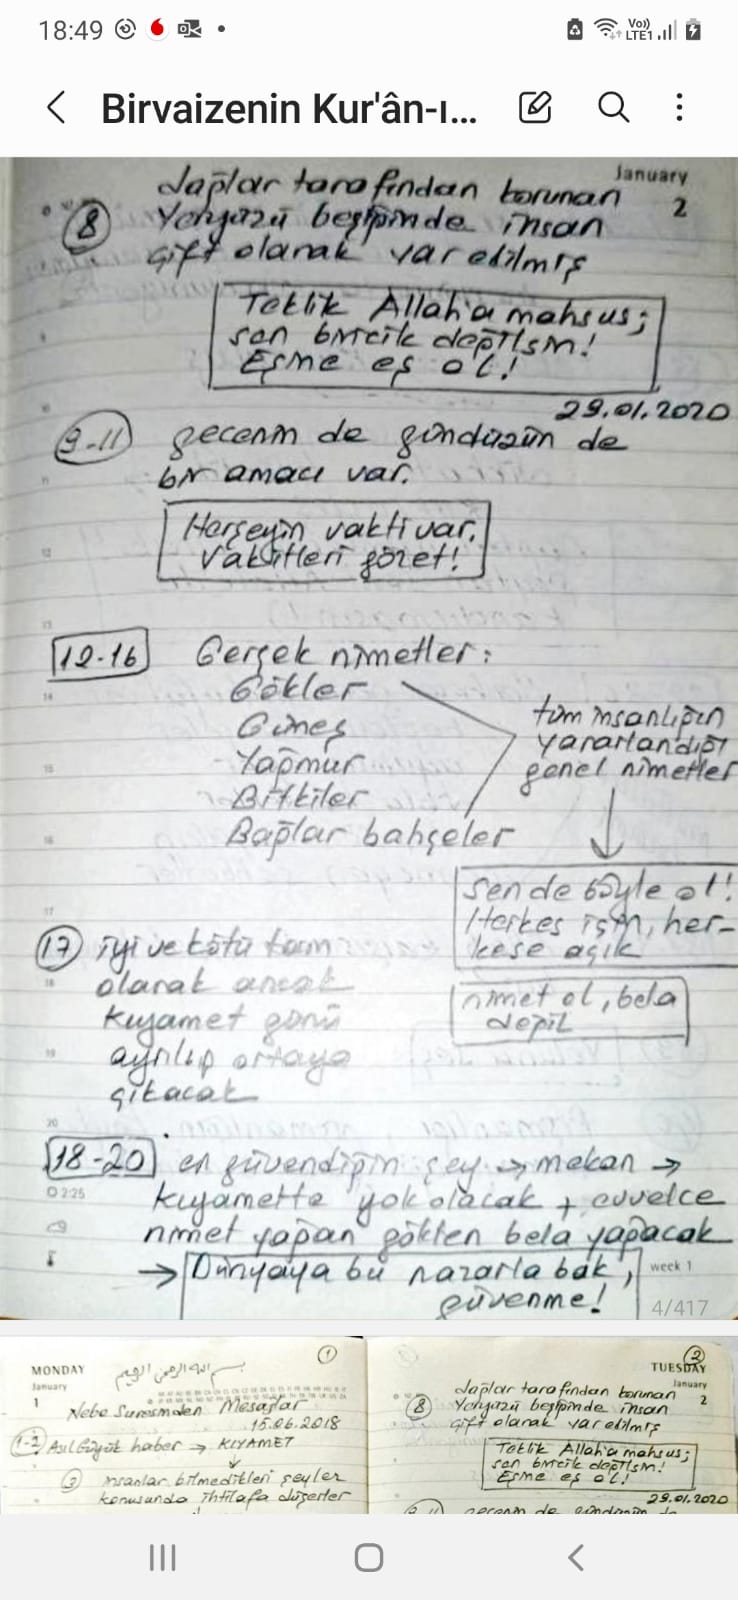 18:49
Vo)) LTE1
Birvaizenin Kur'ân-ı...
January
2
dağlar tarafından korunan
8 Yeryüzü beşiğinde insan
çift olarak var edilmiş
Teklik Allah'a mahsus;
sen biricik değilsin!
Eşine eş ol!
29.01.2020
9-11 gecenin de gündüzün de
bir amacı var.
Herşeyin vakti var,
vakitleri gözet!
12-16 Gerçek nimetler:
Gökler
Güneş
Yağmur
Bitkiler
Bağlar bahçeler
tüm insanlığın
yararlandığı
genel nimetler
Sen de böyle ol!
Herkes için, her-
kese açık
nimet ol, bela
değil
17 iyi ve kötü tam
olarak ancak
kıyamet günü
ayrılıp ortaya
çıkacak
18-20 en güvendiğin şey → mekan →
kıyamette yok olacak + evvelce
nimet yapan gökten bela yapacak
→ Dünyaya bu nazarla bak,
güvenme!
week 1
4/417
MONDAY
January
1
بسم الله الرحمن الرحيم
1
Nebe Suresinden Mesajlar
15.06.2018
1-2 Asıl büyük haber → KIYAMET
3 insanlar bilmedikleri şeyler
konusunda ihtilafa düşerler
2
TUESDAY
January
2
dağlar tarafından korunan
8 Yeryüzü beşiğinde insan
çift olarak var edilmiş
Teklik Allah'a mahsus;
sen biricik değilsin!
Eşine eş ol!
29.01.2020
gecenin de gündüzün de